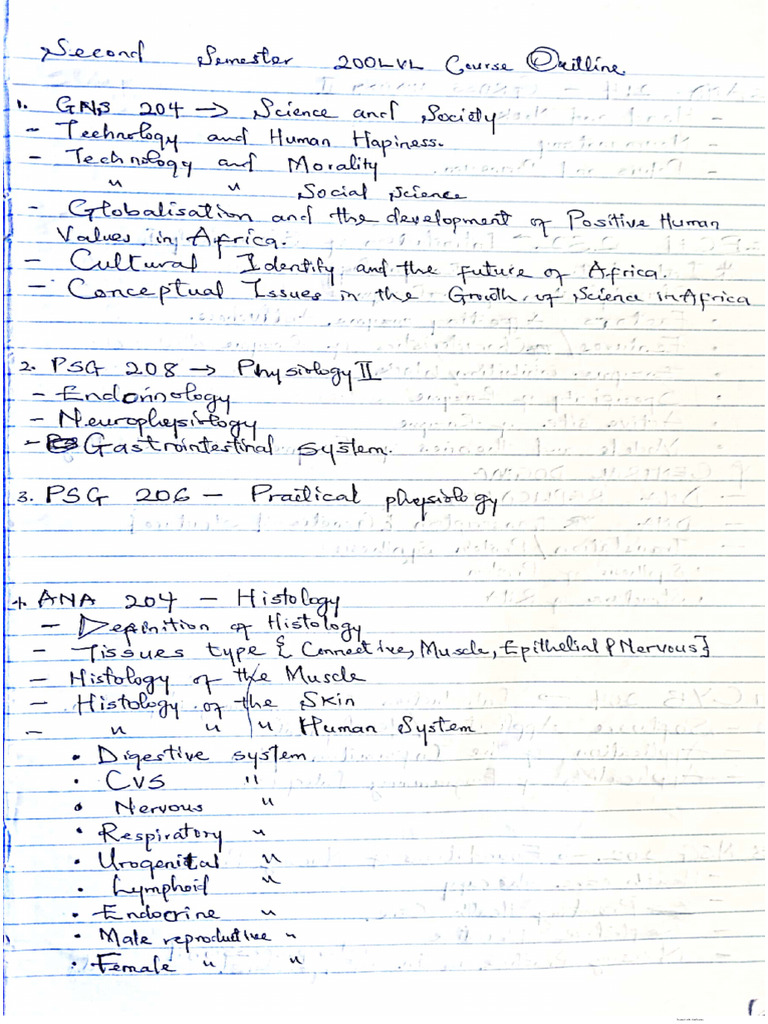 Second Semester 200LVL Course Outline
1. GNS 204 → Science and Society
- Technology and Human Hapiness.
- Technology and Morality
" " Social Science
- Globalisation and the development of Positive Human
Values in Africa.
- Cultural Identity and the future of Africa.
- Conceptual Issues in the Growth of Science in Africa
2. PSG 208 → Physiology II
- Endorinology
- Neurophysiology
- Gastrointestinal system.
3. PSG 206 - Practical physiology
4. ANA 204 - Histology
- Definition of Histology
- Tissues type { Connective, Muscle, Epithelial & Nervous}
- Histology of the Muscle
- Histology of the Skin
- " " " Human System
• Digestive system
• CVS "
• Nervous "
• Respiratory "
• Urogenital "
• Lymphoid "
• Endocrine "
• Male reproductive "
• Female " "